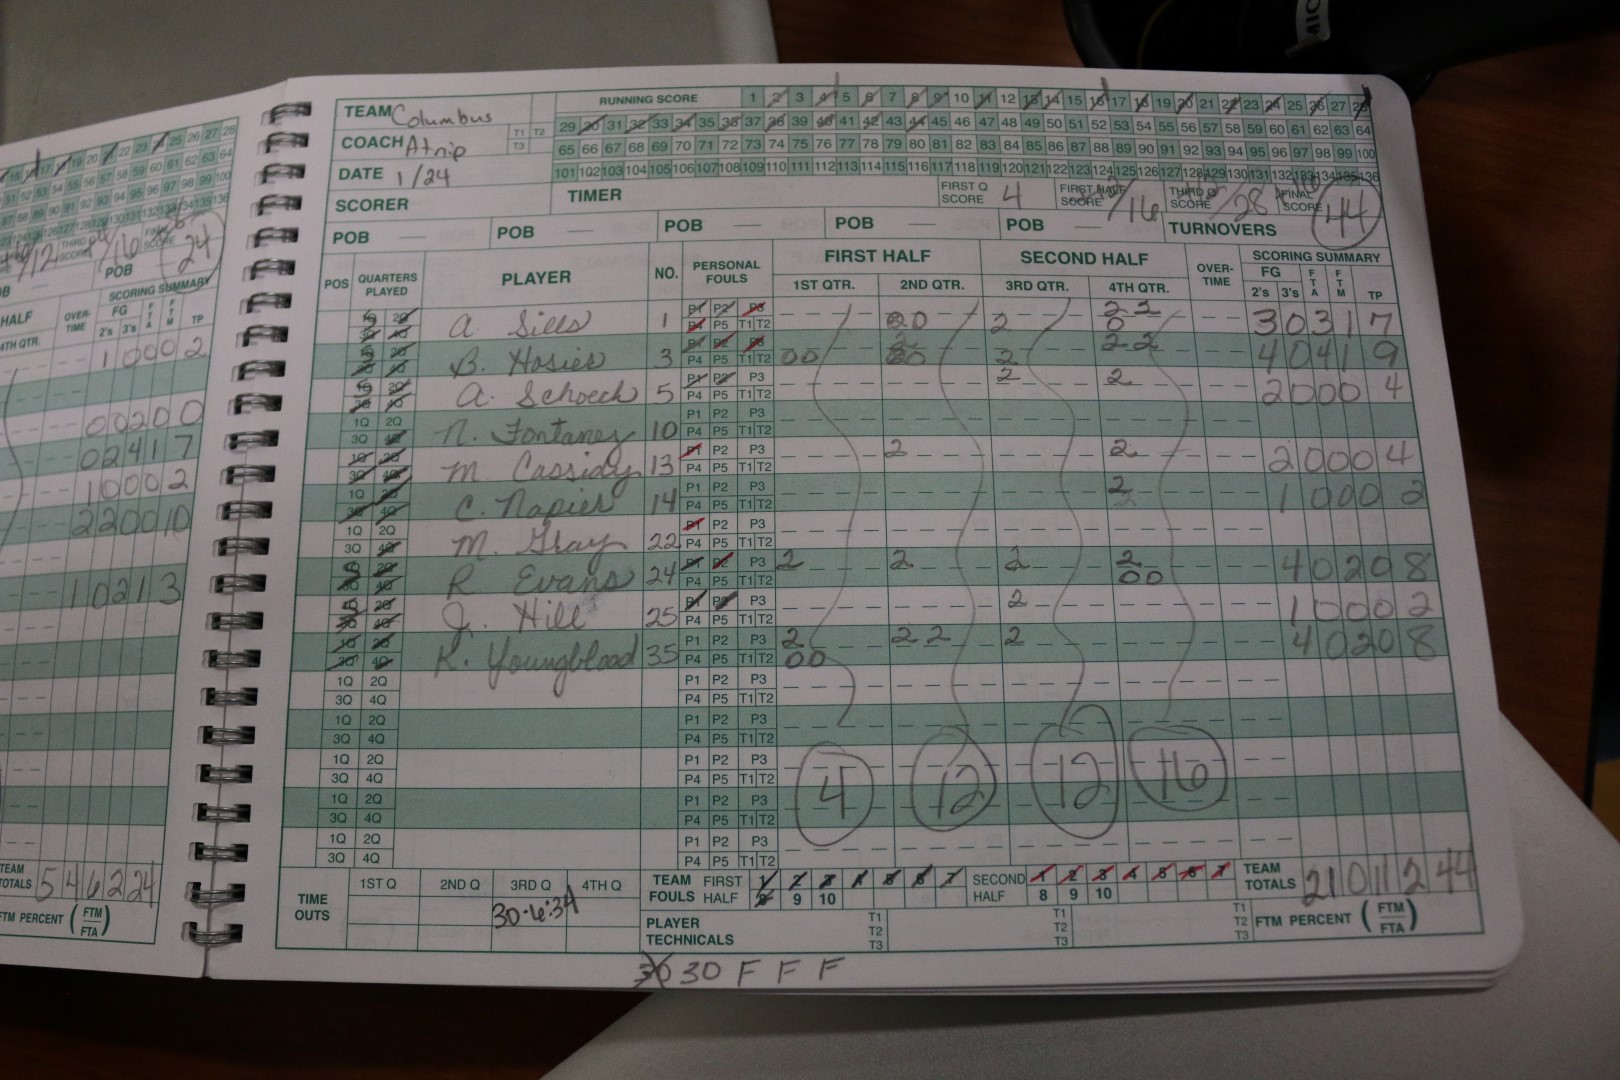 TEAM Columbus T1 T2 T3
COACH Atrip
DATE 1/24
RUNNING SCORE 1 2 3 4 5 6 7 8 9 10 11 12 13 14 15 16 17 18 19 20 21 22 23 24 25 26 27 28
29 30 31 32 33 34 35 36 37 38 39 40 41 42 43 44 45 46 47 48 49 50 51 52 53 54 55 56 57 58 59 60 61 62 63 64
65 66 67 68 69 70 71 72 73 74 75 76 77 78 79 80 81 82 83 84 85 86 87 88 89 90 91 92 93 94 95 96 97 98 99 100
101 102 103 104 105 106 107 108 109 110 111 112 113 114 115 116 117 118 119 120 121 122 123 124 125 126 127 128 129 130 131 132 133 134 135 136
SCORER TIMER FIRST Q SCORE 4 FIRST HALF SCORE 12/16 THIRD Q SCORE /28 FINAL SCORE 44
POB — POB — POB — POB — POB — TURNOVERS
POS QUARTERS PLAYED PLAYER NO. PERSONAL FOULS FIRST HALF SECOND HALF OVER-TIME SCORING SUMMARY
1ST QTR. 2ND QTR. 3RD QTR. 4TH QTR. FG 2's 3's FTA FTM TP
A. Sills 1 P1 P2 P3 P4 P5 T1 T2 2 3 0 3 1 7
B. Hosies 3 P1 P2 P3 P4 P5 T1 T2 00 2 2 2 4 0 4 1 9
A. Schoech 5 P1 P2 P3 P4 P5 T1 T2 2 2 2 0 0 0 4
N. Fontaney 10 P1 P2 P3 P4 P5 T1 T2
M. Cassidy 13 P1 P2 P3 P4 P5 T1 T2 2 2 2 0 0 0 4
C. Napier 14 P1 P2 P3 P4 P5 T1 T2 2 1 0 0 0 2
M. Gray 22 P1 P2 P3 P4 P5 T1 T2
R. Evans 24 P1 P2 P3 P4 P5 T1 T2 2 2 2 2 00 4 0 2 0 8
J. Hill 25 P1 P2 P3 P4 P5 T1 T2 2 1 0 0 0 2
K. Youngblood 35 P1 P2 P3 P4 P5 T1 T2 2 00 2 2 2 4 0 2 0 8
1Q 2Q 3Q 4Q P1 P2 P3 P4 P5 T1 T2
1Q 2Q 3Q 4Q P1 P2 P3 P4 P5 T1 T2
1Q 2Q 3Q 4Q P1 P2 P3 P4 P5 T1 T2
1Q 2Q 3Q 4Q P1 P2 P3 P4 P5 T1 T2
1Q 2Q 3Q 4Q P1 P2 P3 P4 P5 T1 T2
4 12 12 16
TIME OUTS 1ST Q 2ND Q 3RD Q 4TH Q
30-6:34
TEAM FOULS FIRST HALF 1 2 3 4 5 6 7 8 9 10 SECOND HALF 1 2 3 4 5 6 7 8 9 10
TEAM TOTALS 21 0 11 2 44
PLAYER TECHNICALS T1 T2 T3 T1 T2 T3 T1 T2 T3 FTM PERCENT (FTM/FTA)
30 30 F F F
SCORING SUMMARY
24
POB
HALF OVER-TIME FG 2's 3's FTA FTM TP
4TH QTR.
1 0 0 0 2
0 0 2 0 0
0 2 4 1 7
1 0 0 0 2
2 2 0 0 10
1 0 2 1 3
TEAM TOTALS 5 4 6 2 24
FTM PERCENT (FTM/FTA)
MIC